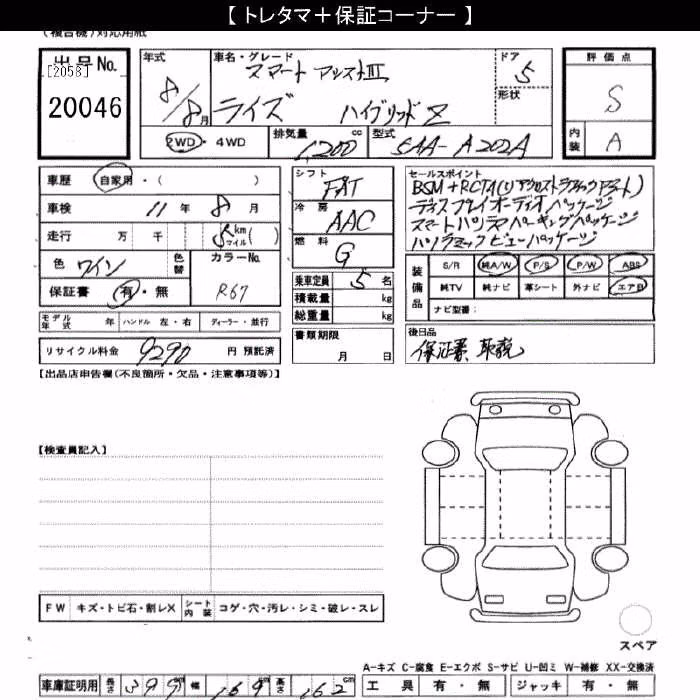 【 トレタマ＋保証コーナー 】
(複合機)対応用紙
出品No.
[2058]
20046
年式
8/8月
車名・グレード
スマートアシストⅢ
ライズ ハイブリッドZ
ドア
5
形状
評価点
S
内装
A
2WD・4WD
排気量
1,200 cc
型式
5AA-A202A
車歴
自家用・( )
車検
11年 8月
走行
万 千 5 km マイル( )
色
ワイン
色替
カラーNo.
R67
保証書
有・無
シフト
FAT
冷房
AAC
燃料
G
乗車定員 5 名
積載量 kg
総重量 kg
セールスポイント
BSM+RCTA(リアクロストラフィックアラート)
ディスプレイオーディオパッケージ
スマートパノラマパーキングパッケージ
パノラミックビューパッケージ
装備品
S/R 純A/W P/S P/W ABS
純TV 純ナビ 革シート 外ナビ エアB
ナビ型番：
モデル年式 年 ハンドル 左・右 ディーラー・並行
書類期限
月 日
後日品
保証書、取説
リサイクル料金 9290 円 預託済
【出品店申告欄(不良箇所・欠品・注意事項等)】
【検査員記入】
FW キズ・トビ石・割レX シート内装 コゲ・穴・汚レ・シミ・破レ・スレ
スペア
A-キズ C-腐食 E-エクボ S-サビ U-凹ミ W-補修 XX-交換済
車庫証明用 長さ 399 cm 幅 169 cm 高さ 162 cm
工具 有・無 ジャッキ 有・無